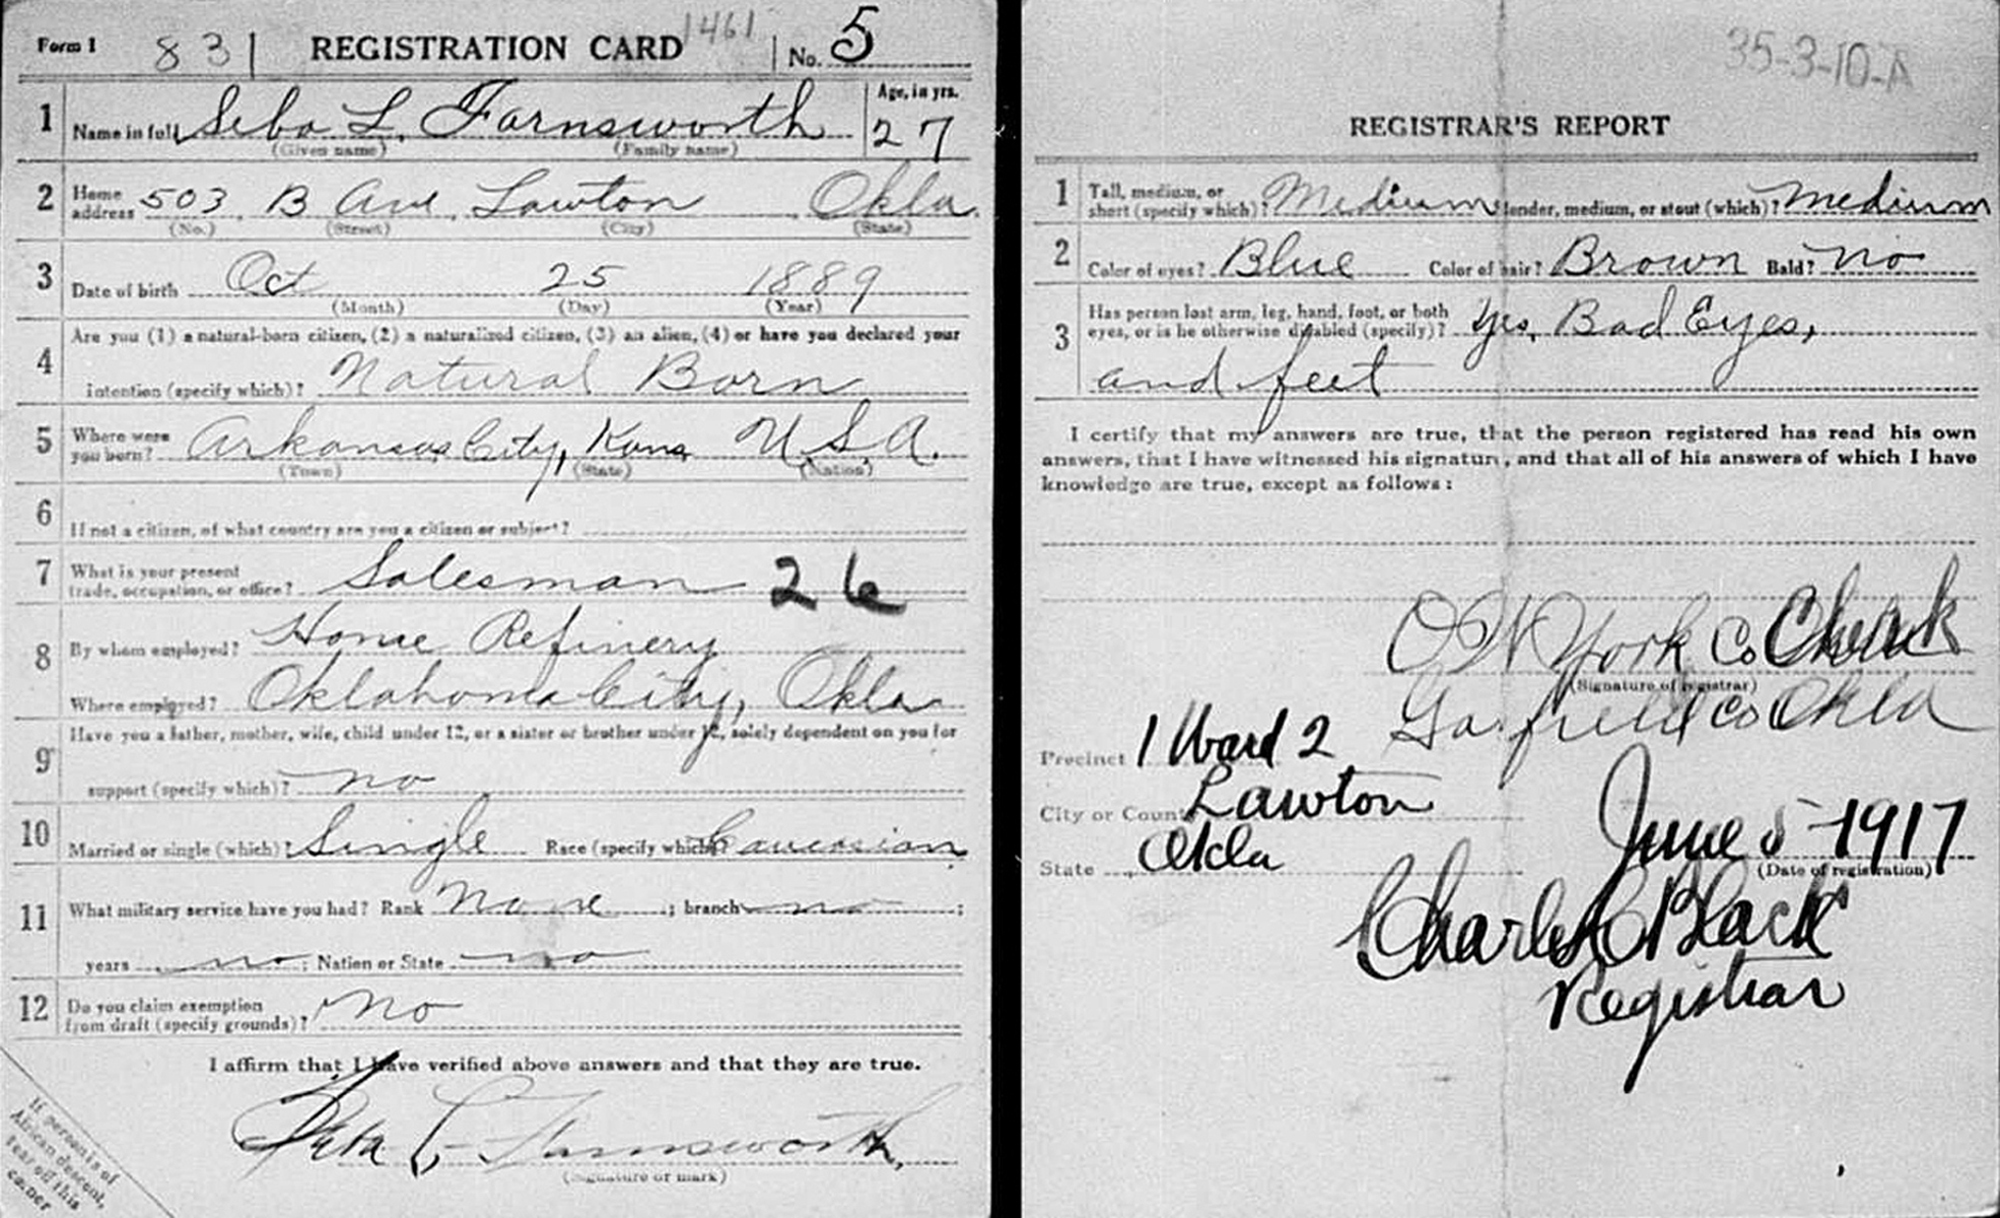 Form 1 831 REGISTRATION CARD 1461 No. 5
1 Name in full Seba L. Farnsworth Age, in yrs. 27
(Given name) (Family name)
2 Home address 503 B Ave Lawton Okla
(No.) (Street) (City) (State)
3 Date of birth Oct 25 1889
(Month) (Day) (Year)
4 Are you (1) a natural-born citizen, (2) a naturalized citizen, (3) an alien, (4) or have you declared your
intention (specify which)? Natural Born
5 Where were you born? Arkansas City, Kans U.S.A.
(Town) (State) (Nation)
6 If not a citizen, of what country are you a citizen or subject?
7 What is your present
trade, occupation, or office? Salesman 26
8 By whom employed? Home Refinery
Where employed? Oklahoma City, Okla
9 Have you a father, mother, wife, child under 12, or a sister or brother under 12, solely dependent on you for
support (specify which)? no
10 Married or single (which)? Single Race (specify which)? Caucasian
11 What military service have you had? Rank None ; branch no ;
years no ; Nation or State no
12 Do you claim exemption
from draft (specify grounds)? No
I affirm that I have verified above answers and that they are true.
Seba L Farnsworth
(Signature or mark)
If person is of
African descent,
tear off this
corner
35-3-10-A
REGISTRAR'S REPORT
1 Tall, medium, or
short (specify which)? Medium Slender, medium, or stout (which)? Medium
2 Color of eyes? Blue Color of hair? Brown Bald? no
3 Has person lost arm, leg, hand, foot, or both
eyes, or is he otherwise disabled (specify)? Yes, Bad Eyes,
and feet
I certify that my answers are true, that the person registered has read his own
answers, that I have witnessed his signature, and that all of his answers of which I have
knowledge are true, except as follows:
O W York Co Clerk
(Signature of registrar)
Garfield Co Okla
Precinct 1 Ward 2
City or County Lawton
State Okla
June 5 - 1917
(Date of registration)
Charles C Black
Registrar